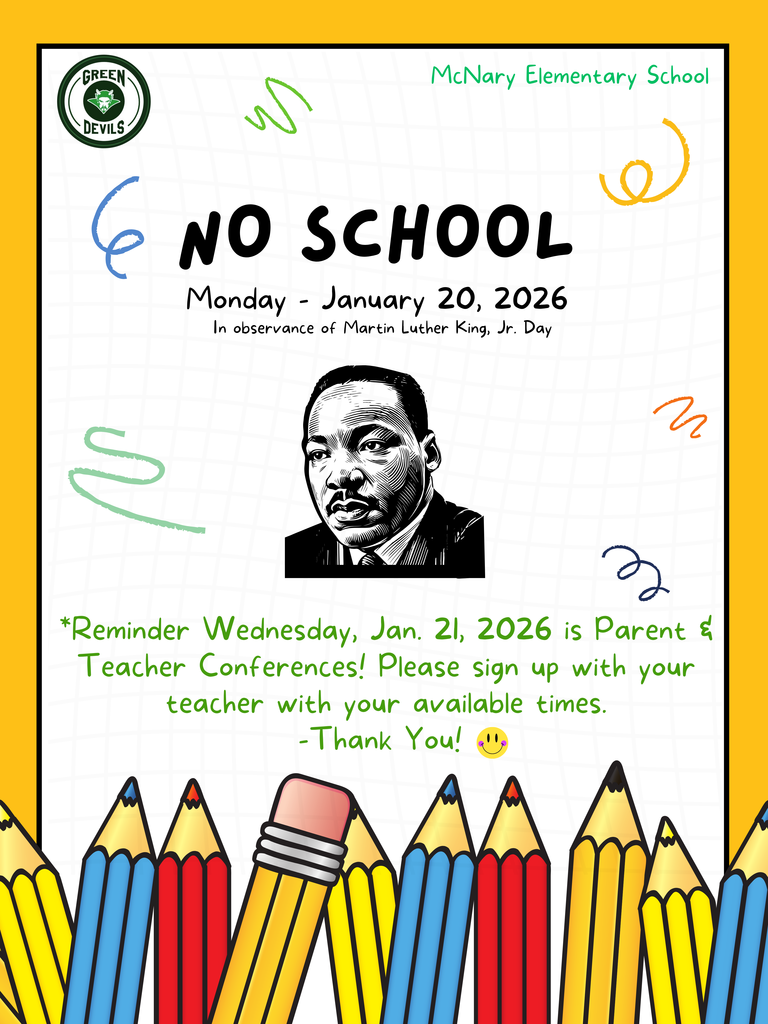 GREEN
DEVILS
McNary Elementary School
NO SCHOOL
Monday - January 20, 2026
In observance of Martin Luther King, Jr. Day
*Reminder Wednesday, Jan. 21, 2026 is Parent &
Teacher Conferences! Please sign up with your
teacher with your available times.
-Thank You!